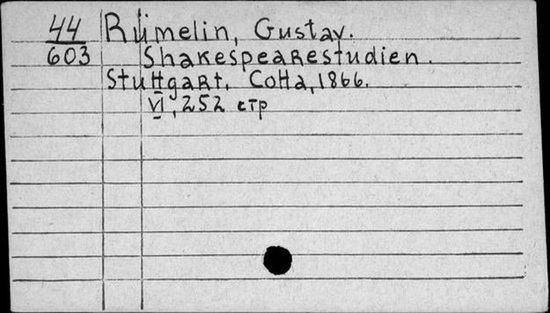 44 Rümelin, Gustav.
603 Shakespearestudien.
Stuttgart, Cotta, 1866.
VI, 252 стр